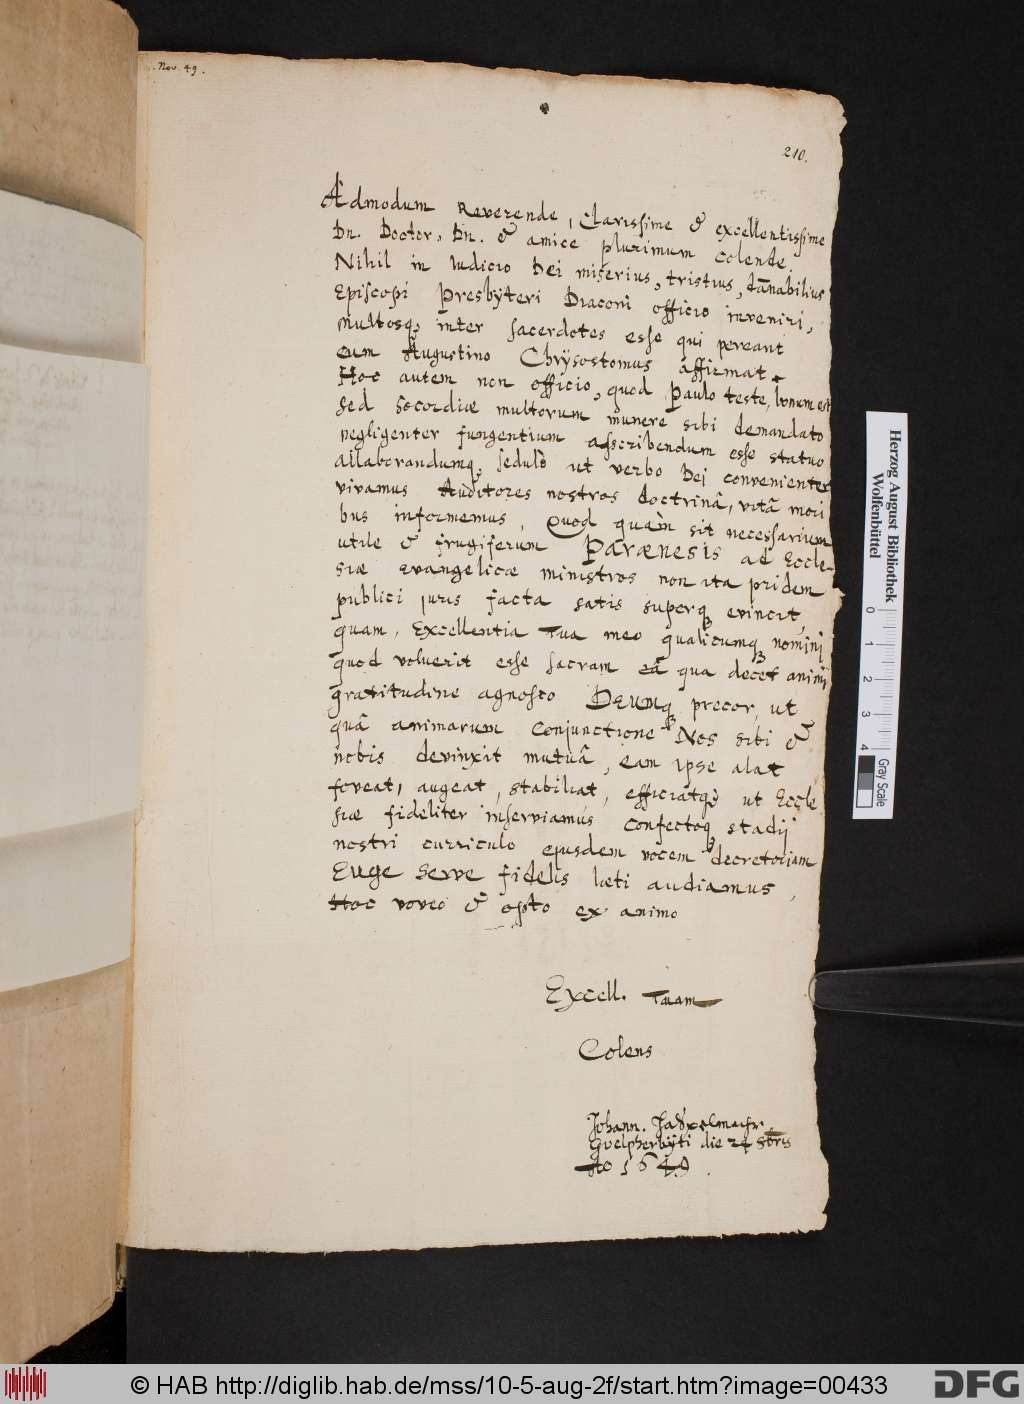 . Nov. 49.
210.
Admodum Reverende, Clarissime & excellentissime
Dn. Doctor, Dn. & amice plurimum colende.
Nihil in Iudicio Dei miserius, tristius, dānabilius
Episcopi Presbÿteri Diaconi officio inveniri,
multosq; inter sacerdotes esse qui pereant
cum Augustino Chrÿsostomus affirmat.
Hoc autem non officio, quod Paulo teste, bonum est
sed socordiæ multorum munere sibi demandato
negligenter fungentium asscribendum esse statuo
allaborandumq; sedulò ut verbo Dei convenienter
vivamus Auditores nostros doctrinâ, vitâ mori
bus informemus, Quod quàm sit necessarium
utile & frugiferum Parænesis ad Eccle-
siæ evangelicæ ministros non ita pridem
publici juris facta satis superq; evincit,
quam, Excellentia Tua meo qualicumq; nomini
quod voluerit esse sacram eâ qua decet animi
gratitudine agnosco Deumq; precor, ut
quâ animarum conjunctione Nos sibi &
nobis devinxit mutuâ, eam ipse alat
foveat, augeat, stabiliat, efficiatq; ut Eccle
siæ fideliter inserviamus confectoq; stadij
nostri curriculo ejusdem vocem decretoriam
Euge serve fidelis læti audiamus,
Hoc voveo & opto ex animo
Excell. Tuam
Colens
Johann.
Guelpherbÿti die 24 8bris
Ao 1649.
Herzog August Bibliothek
Wolfenbüttel
0 1 2 3 4
Gray Scale
© HAB http://diglib.hab.de/mss/10-5-aug-2f/start.htm?image=00433
DFG